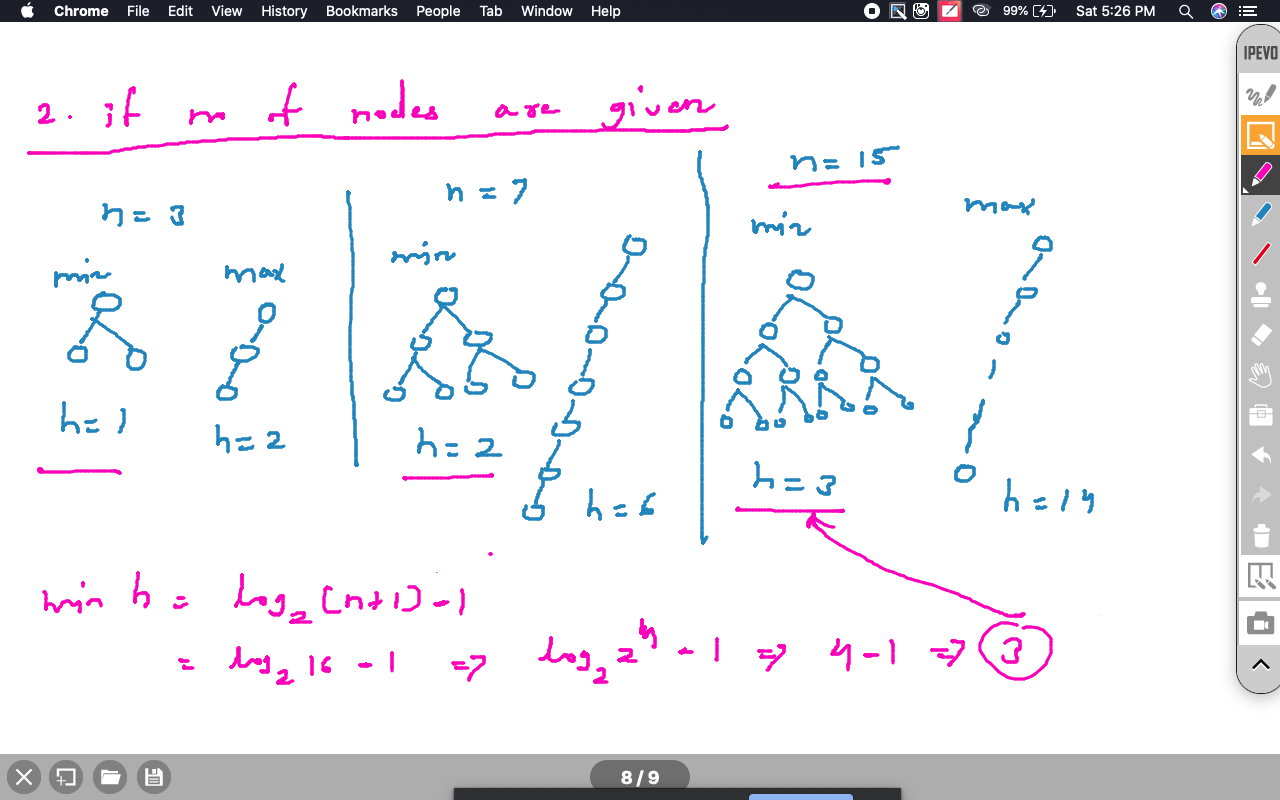 Chrome File Edit View History Bookmarks People Tab Window Help 99% Sat 5:26 PM
IPEVO
2. if no of nodes are given
n = 3
min max
h = 1 h = 2
n = 7
min
h = 2 h = 6
n = 15
min max
h = 3 h = 14
min h = log₂ (n+1) - 1
= log₂ 16 - 1 => log₂ 2⁴ - 1 => 4 - 1 => 3
8 / 9